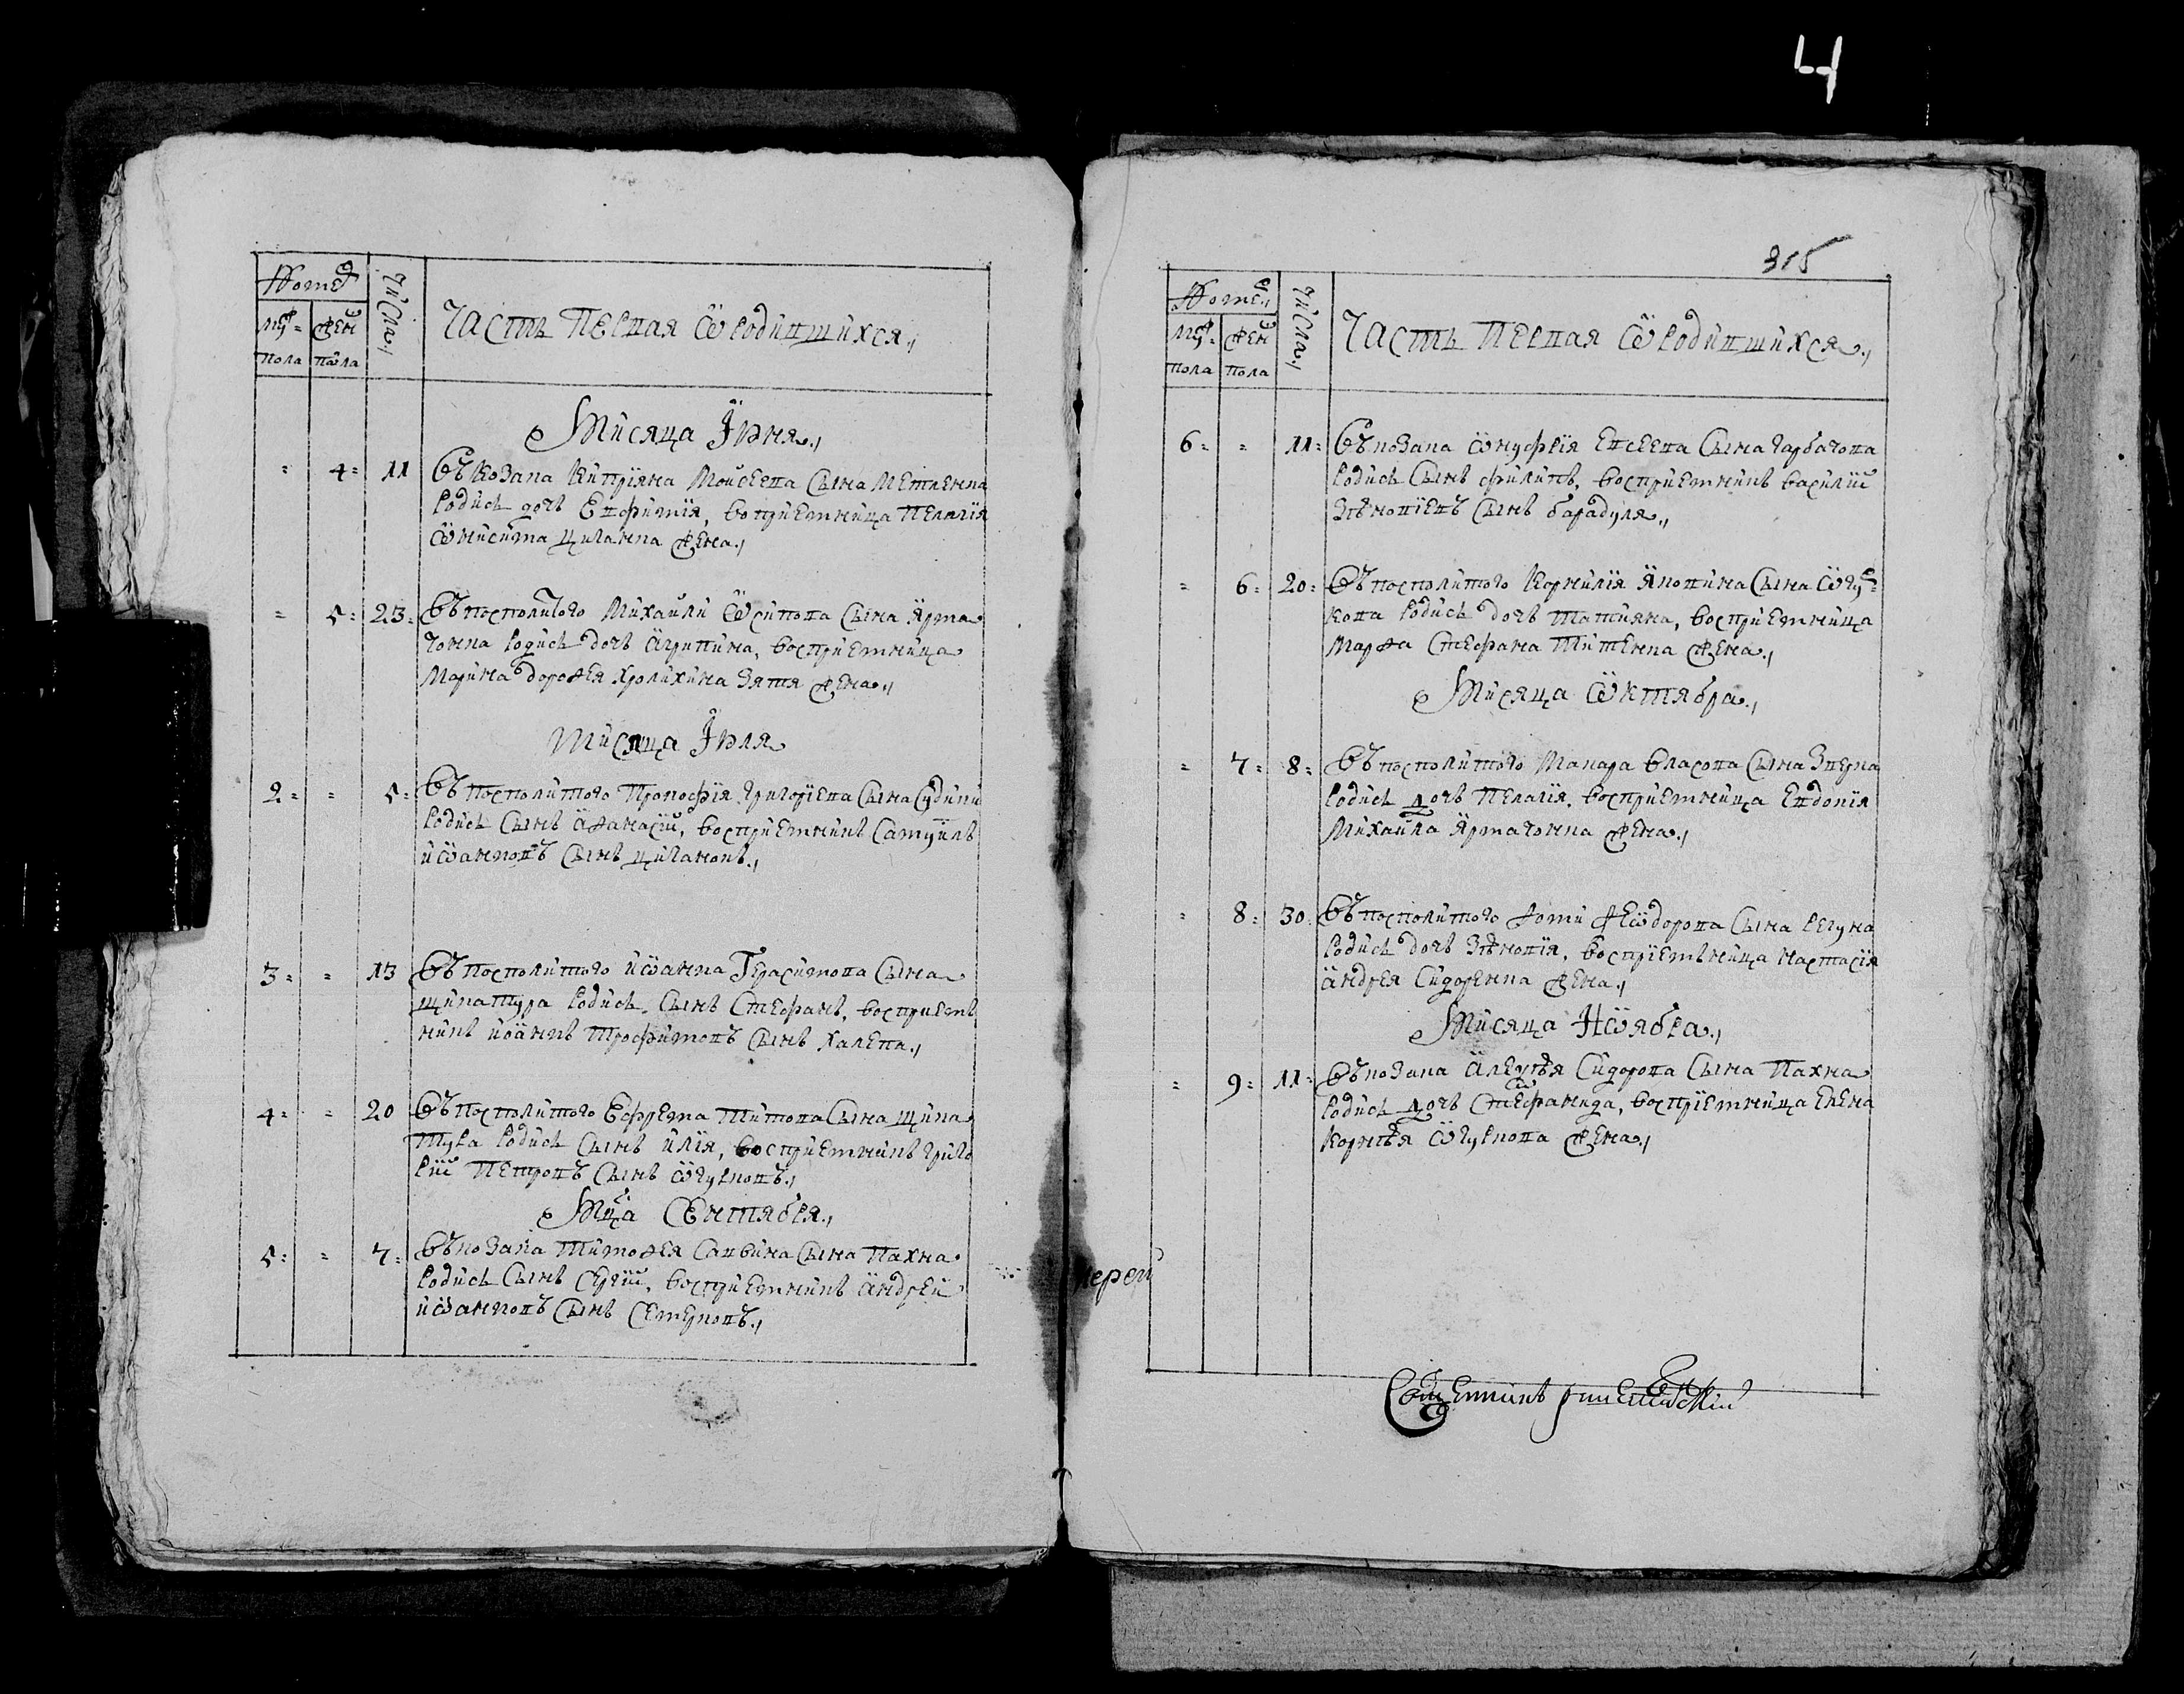 4
Номеръ
Числа
Часть первая ѿ родившихся
муж: жен
пола пола
Мѣсяца Іюня
4 11 Въ козака Кипріяна Моисеева сына Метленка
родись дочь Евфимія, воприемница Пелагія
Ѡнисима Циганка жена
5 23 Въ посполитого Михаили Ѡсипова сына Ярма
чонка родись дочь Агрипина, восприемница
Марина Дорофея Хролихина зятя жена
Мисяца Іюля
2 5 Въ посполитого Прокофія Григорієва сына
родись сынъ Афанасій, восприемникъ Самуилъ
Иѡанновъ сынъ Циганокъ
3 13 Въ посполитого Иѡанна Герасимова сына
Щинатура родись сынъ Стефанъ, восприемъ
никъ Иоаннъ Трофимовъ сынъ Халепа
4 20 Въ посполитого Ефрема Титова сына Щина
тура родись сынъ Илія, восприемникъ Григо
рій Петровъ сынъ Ѡгурковъ
Мца Сентября
5 7 Въ козака Тимофея Саввина сына Пахна
родись сынъ Сергій, восприемникъ Андрей
Иѡанновъ сынъ
315
Номеръ
Числа
Часть первая ѿ родившихся
муж: жен
пола пола
6 11 Въ козака Ѡнуфрія Евсеева сына Гарбачова
родись сынъ Филипъ, восприемникъ Василій
Зѣновіевъ сынъ Барабуля
6 20 Въ посполитого Корнилія Яковина сына Ѡгур
кова родись дочь Татияна, восприемница
Марфа Стефана Титенка жена
Мисяца Ѡктября
7 8 Въ посполитого Макара Власова сына
родись дочь Пелагія, восприемница Евдокія
Михайла Ярмачонка жена
8 30 Въ посполитого Фоми Феѡдорова сына
родись дочь Зѣновія, восприемъница Настасія
Андрея Сидоренка жена
Мисяца Ноября
9 11 Въ козака Алексѣя Сидорова сына Пахна
родись дочь Стефанида, восприемница Елена
Корнѣя Ѡгуркова жена
иерей